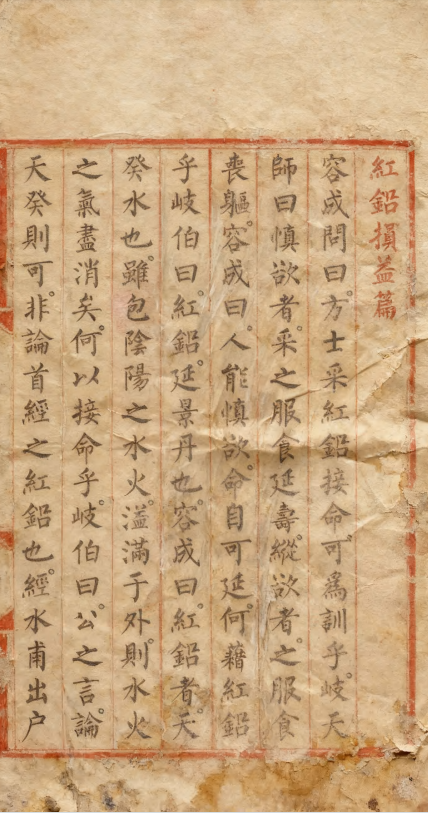 紅鉛損益篇
容成問曰方士采紅鉛接命可為訓乎岐天
師曰慎欲者采之服食延壽縱欲者之服食
喪軀容成曰人能慎欲命自可延何藉紅鉛
乎岐伯曰紅鉛延景丹也容成曰紅鉛者天
癸水也雖包陰陽之水火溢滿于外則水火
之氣盡消矣何以接命乎岐伯曰公之言論
天癸則可非論首經之紅鉛也經水甫出户